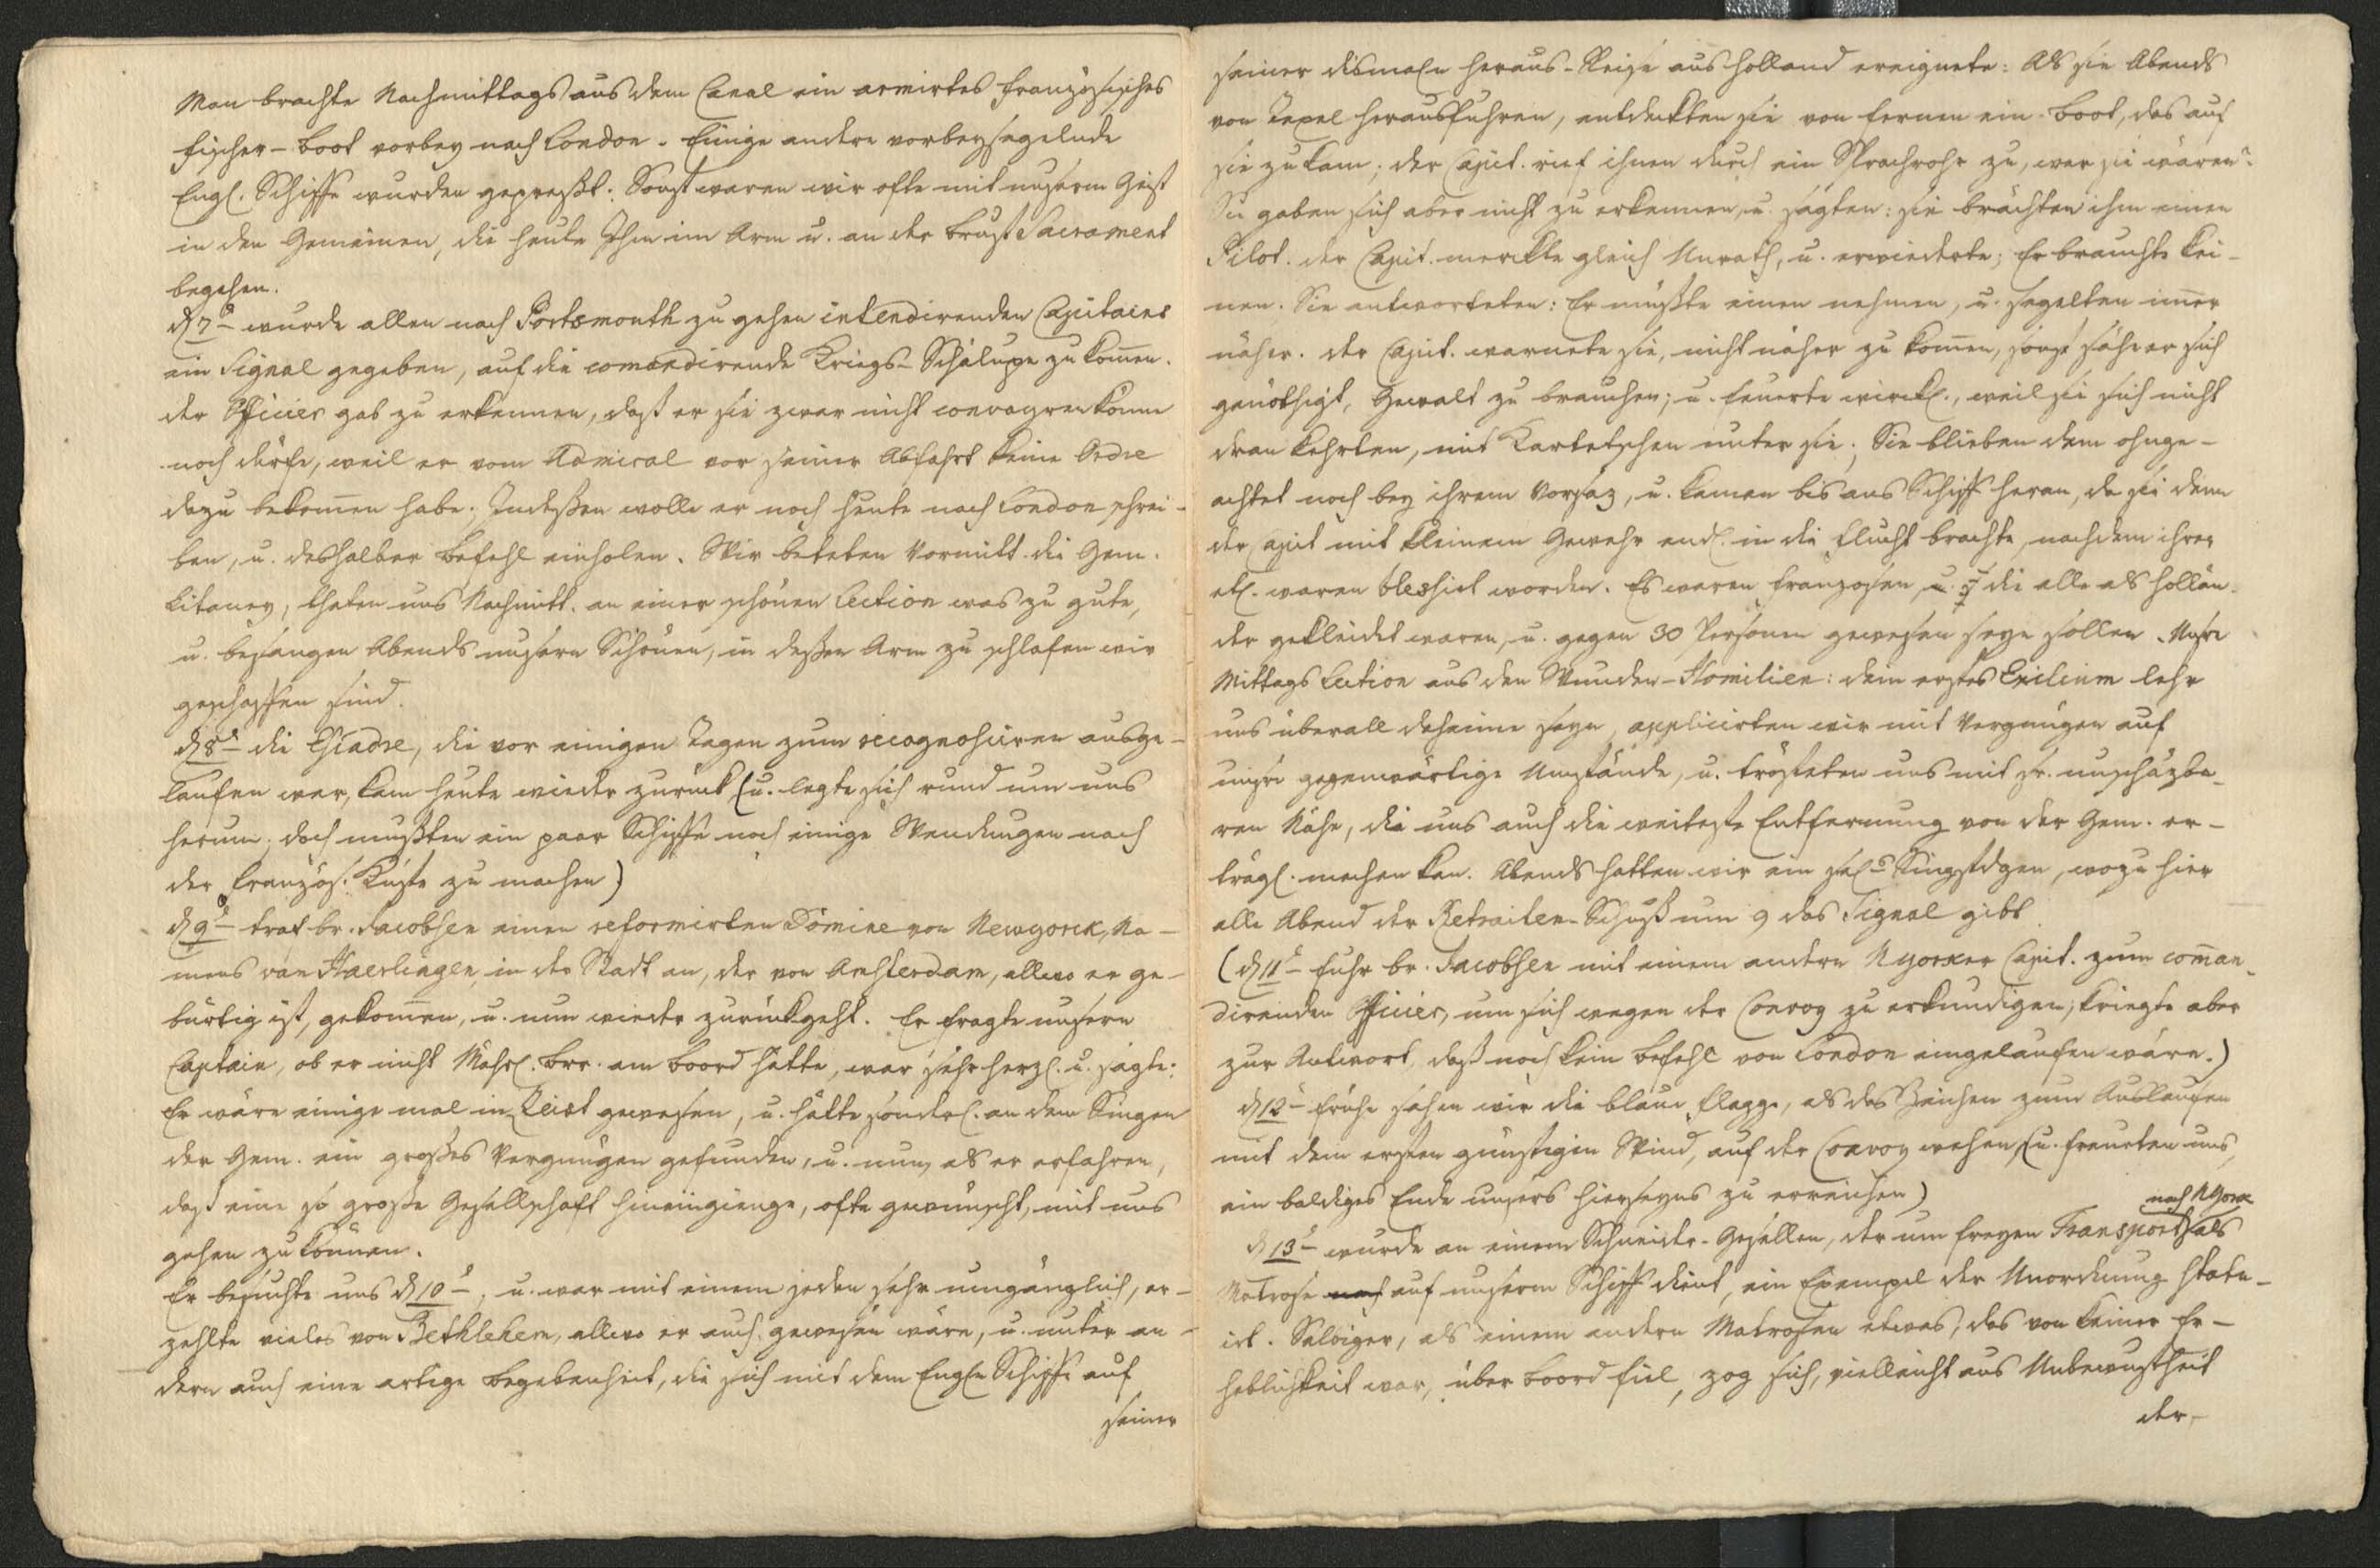 Man brachte Nachmittags aus dem Canal ein armirtes französisches
Fischer-Boot vorbey nach London. Einige andere vorbeysegelnde
Engl. Schiffe wurden gepreßt. Sonst waren wir ofte mit unserm Geist
in den Gemeinen, die heute Ihm im Arm u. an der Brust Sacrament
begehen.
d 7t wurde allen nach Portsmouth zu gehen intendirenden Capitains
ein Signal gegeben, auf die comandirende Kriegs-Schalupe zu kom̄en.
der Officier gab zu erkennen, daß er sie zwar nicht convoyren könne
noch dürfe, weil er vom Admiral vor seiner Abfahrt keine Ordre
dazu bekom̄en habe; Indeßen wolle er noch heute nach London schrei-
ben, u. deshalber Befehl einholen. Wir beteten Vormitt. die Gem.
Litaney, thaten uns Nachmitt. an einer schönen Lection was zu gute,
u. besangen Abends unsern Schönen, in deßen Arm zu schlafen wir
geschaffen sind.
d 8t die Escadre, die vor einigen Tagen zum recognosciren ausge-
laufen war, kam heute wieder zurück, (u. legte sich rund um uns
herum; doch mußten ein paar Schiffe noch einige Wendungen nach
der französ. Küste zu machen)
d 9t traf br. Jacobsen einen reformirten Domine von Newyorck, Na-
mens van Haerlingen, in der Stadt an, der von Amsterdam, allwo er ge-
bürtig ist, gekom̄en, u. nun wieder zurückgeht. Er fragte unsern
Captain, ob er nicht Mähr. Brr. am Boord hätte, war sehr herzl. u. sagte:
Er wäre einige mal in Zeist gewesen, u. hätte sonderl. an dem Singen
der Gem. ein großes Vergnügen gefunden, u. nun, als er erfahren,
daß eine so große Gesellschaft hineingienge, ofte gewünscht, mit uns
gehen zu können.
Er besuchte uns d 10t, u. war mit einem jeden sehr umgänglich, er-
zehlte vieles von Bethlehem, allwo er auch gewesen wäre, u. unter an-
dern auch eine artige Begebenheit, die sich mit dem Engln Schiffe auf
seiner
seiner dismaln heraus-Reise aus Holland ereignete: Als sie Abends
von Texel herausfuhren, entdekten sie von fernen ein Boot, das auf
sie zu kam; der Capit. rief ihnen durch ein Sprachrohr zu, wer sie wären?
Sie gaben sich aber nicht zu erkennen, u. sagten: sie brächten ihm einen
Pilot. der Capit. merckte gleich Unrath, u. erwiederte; Er brauchte kei-
nen. Sie antworteten: Er müßte einen nehmen, u. segelten im̄er
näher. der Capit. warnete sie, nicht näher zu kom̄en, sonst sähe er sich
genöthigt, Gewalt zu brauchen; u. feuerte wirckl., weil sie sich nicht
dran kehrten, mit Kartetschen unter sie; Sie blieben dem ohnge-
achtet noch bey ihrem Vorsaz, u. kamen bis ans Schiff heran, da sie denn
der Capit mit kleinem Gewehr endl. in die Flucht brachte, nachdem ihrer
etl. waren blessirt worden. Es waren Franzosen, die alle als Hollän-
der gekleidet waren, u. gegen 30 Personen gewesen seyn sollen. Unsre
Mittags Lection aus den Wunden-Homilien: dein erstes Exilium lehr
uns überall daheime seyn, applicirten wir mit Vergnügen auf
unsre gegenwärtige Umstände, u. trösteten uns mit sr. unschäzba-
ren Nähe, die uns auch die weiteste Entfernung von der Gem. er-
trägl. machen kan. Abends hatten wir ein sel.s Singstdgen, wozu hier
alle Abend der Retraiten-Schuß um 9 das Signal gibt
(d 11t fuhr br. Jacobsen mit einem andern NYorker Capit. zum com̄an-
direnden Officier, um sich wegen der Convoy zu erkundigen; kriegte aber
zur Antwort, daß noch kein Befehl von London eingelaufen wäre.)
d 12t frühe sahen wir die blaue Flagge, als das Zeichen zum Auslaufen
mit dem ersten günstigen Wind, auf der Convoy wehen, (u. freueten uns,
ein baldiges Ende unsers hierseyns zu erreichen)
d 13t wurde an einem Schneider-Gesellen, der um freyen Transport nach NYork als
Matrose auf unserm Schiff dient, ein Exempel der Unordnung statu-
irt. Selbiger, als einem andern Matrosen etwas, das von keiner Er-
heblichkeit war, über Boord fiel, zog sich, vielleicht aus Unbewustheit
der